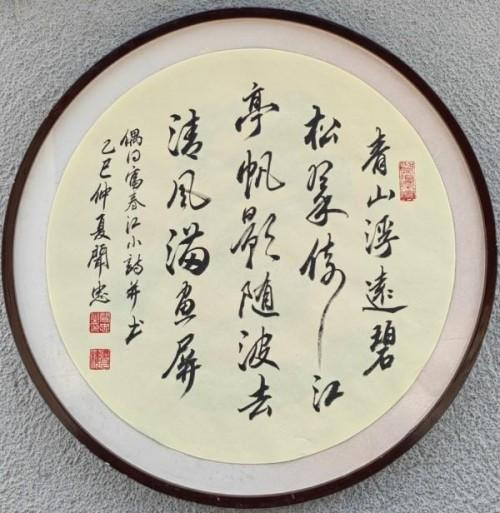 青山浮遠碧
松翠倚江
亭帆影随波去
清风满画屏
偶得富春江小詩并书
乙巳仲夏聞忠